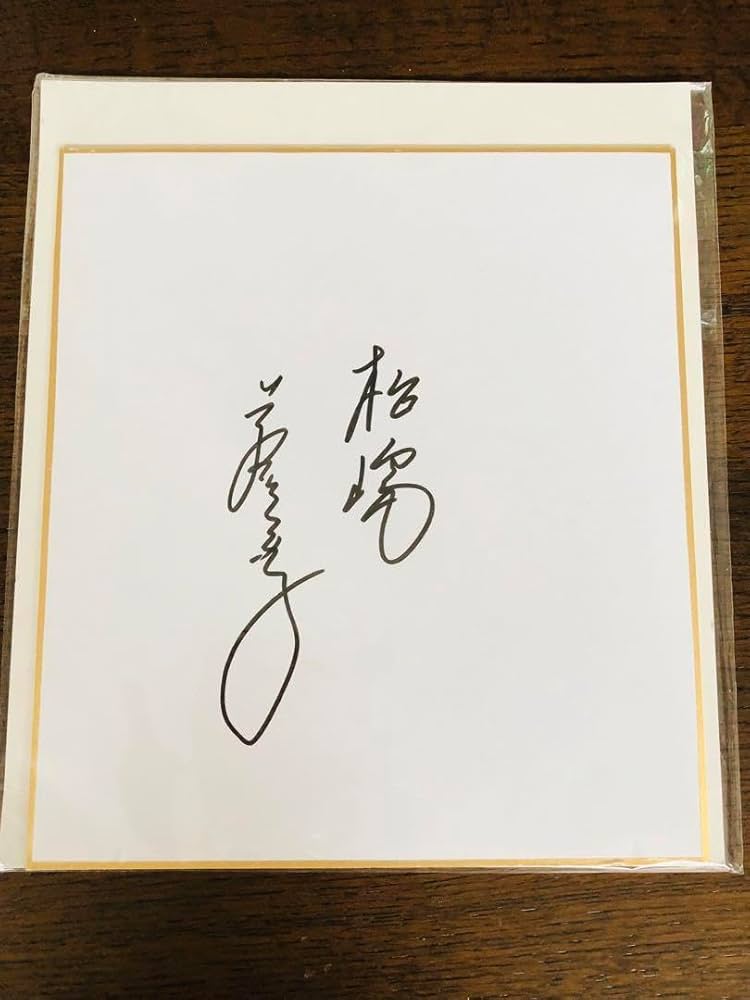 松嶋
菜々子